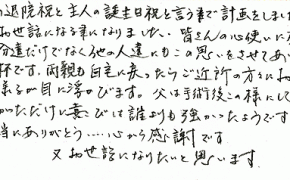 退院祝と主人の誕生日祝と言う事で計画をしました
お世話になる事になりました。皆さんの心使いに
分達だけでなく他の人達にもこの思いをさせてあい
杯です。両親も自宅に戻ったらご近所の方々にお
様子が目に浮かびます。父は手術後この様にして
かっただけに喜びは誰よりも強かったようです
当にありがとう……心から感謝です。
又お世話になりたいと思います。